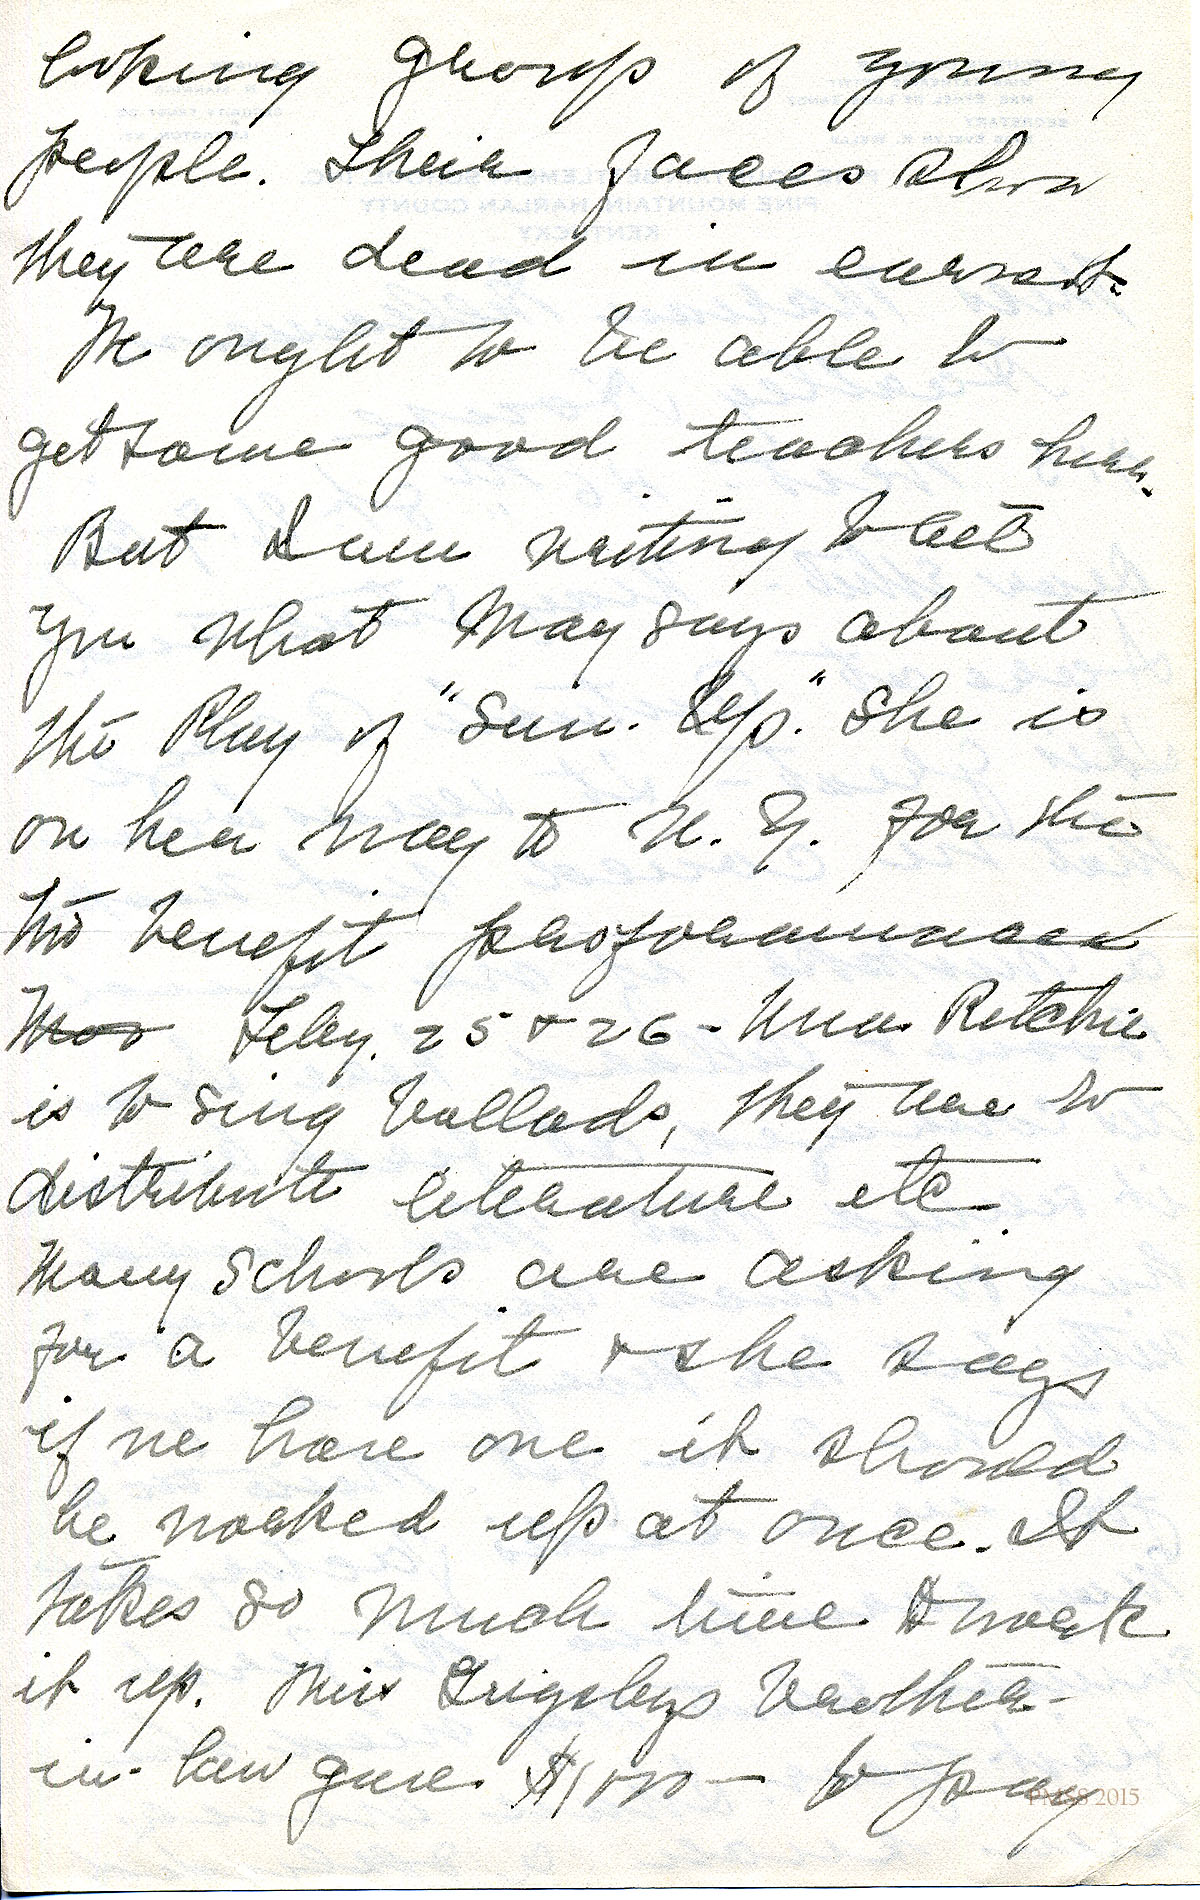 looking group of young
people. Their faces show
they are dead in earnest.
We ought to be able to
get some good teachers here.
But I am writing to tell
you what May says about
the Play of "Sun. Up." She is
on her way to N. Y. for the
two benefit performances
Mar Feby. 25 & 26 - Una Ritchie
is to sing ballads, they are to
distribute literature etc
Many schools are asking
for a benefit & she says
if we have one it should
be worked up at once. It
takes so much time to work
it up. Miss Grigsbys brother-
in-law gave $1000 — to pay
PMSS 2015